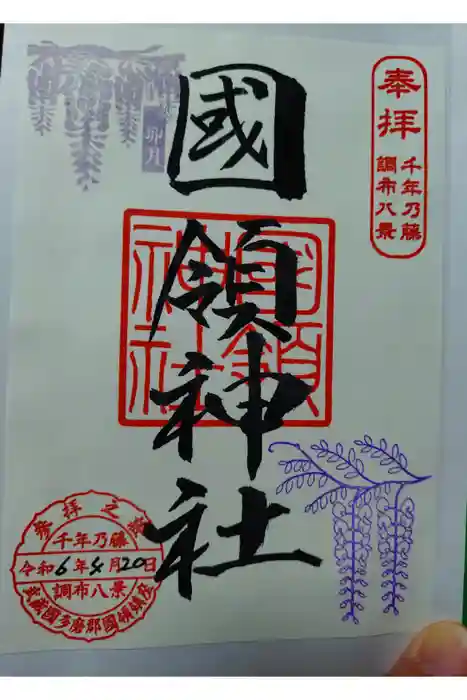 奉拝
千年乃藤
調布八景
卯月
國領神社
國領
神社
参拝之証
千年乃藤
令和6年4月20日
調布八景
武蔵國多磨郡國領鎮座